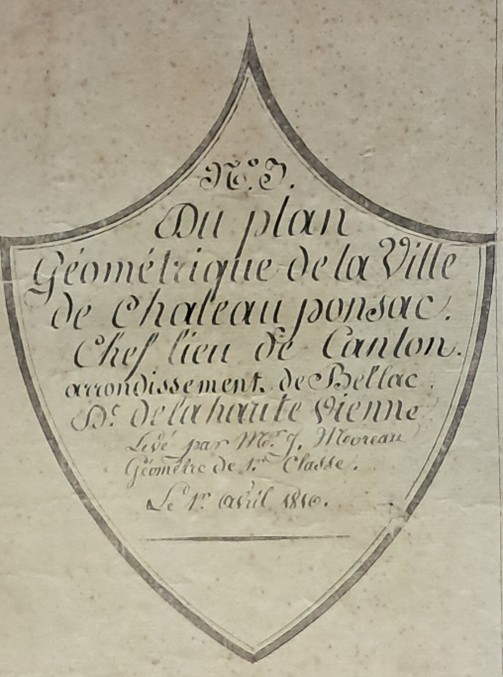 N.º 3.
Du plan
Géométrique de la Ville
de Chateau ponsac.
Chef lieu de Canton.
arrondissement de Bellac.
D.t de la haute Vienne
Levé par M.r J. Moreau
Géomètre de 1.re Classe.
Le 1.er avril 1810.